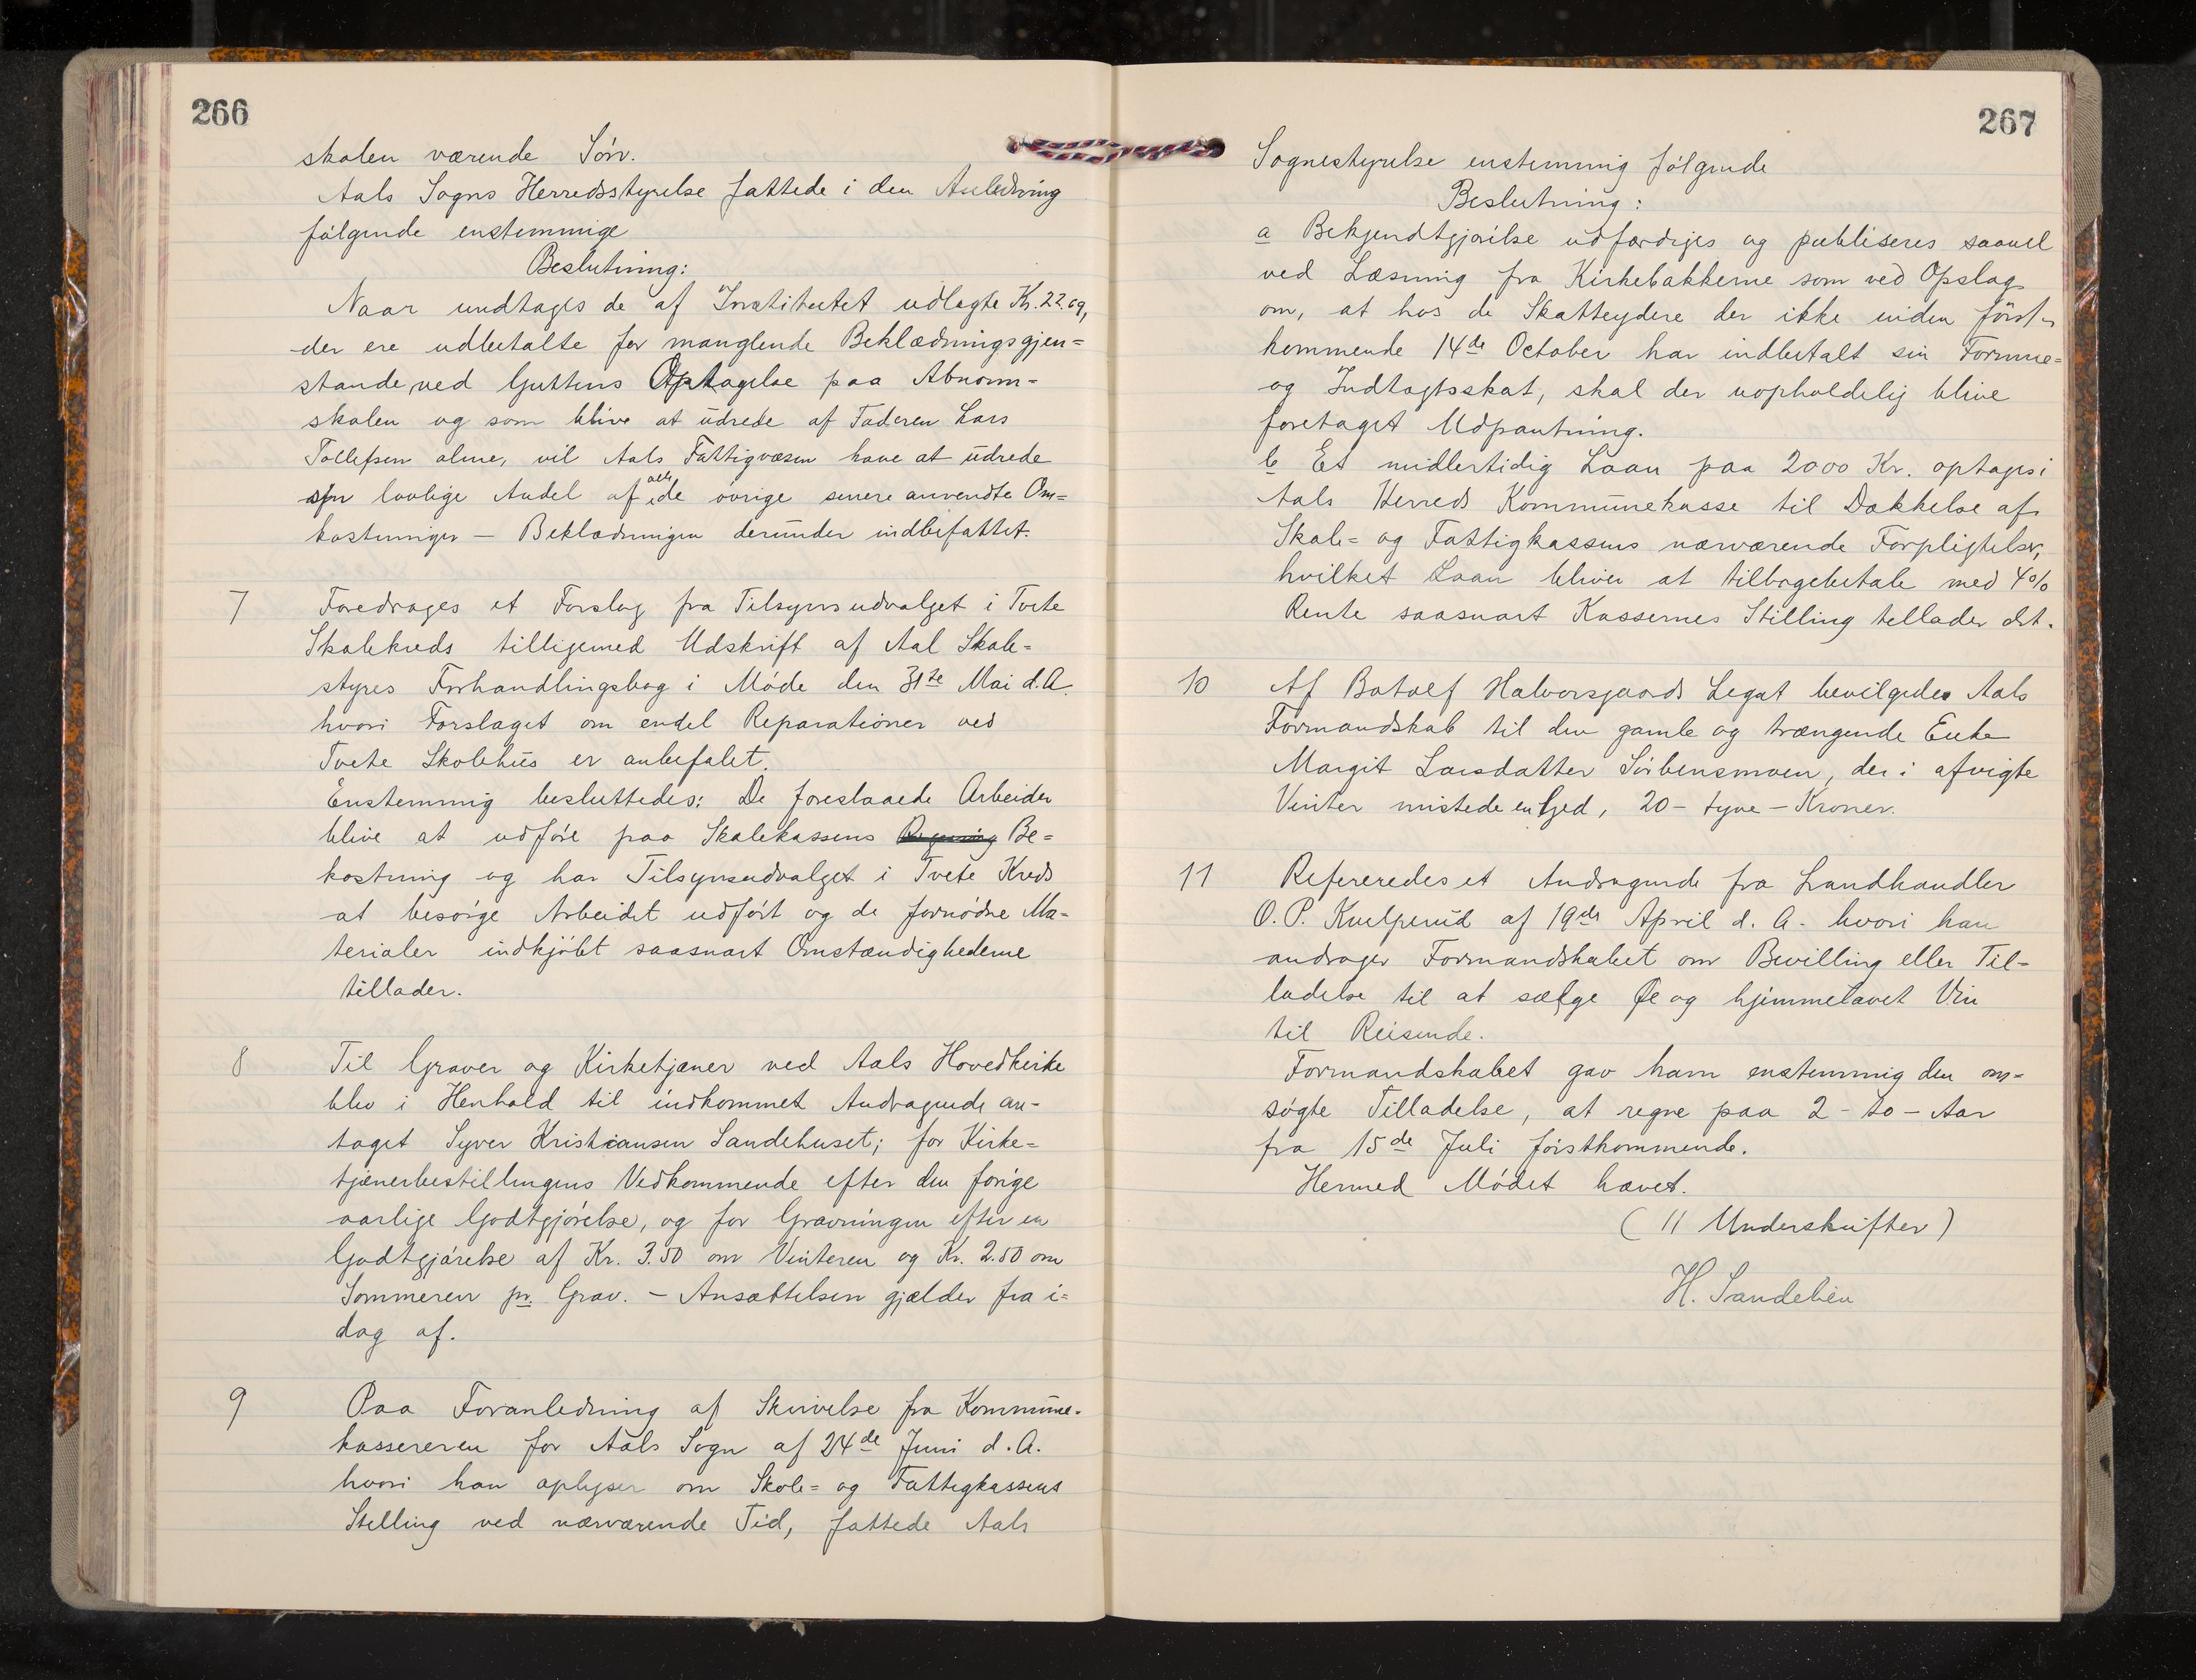 266
skolen værende Søn.
Aals Sogns Herredsstyrelse fattede i den Anledning
følgende enstemmige
Beslutning:
Naar undtages de af Institutet udlagte Kr. 22.09,
der ere udbetalte for manglende Beklædningsgjen=
stande, ved Guttens Optagelse paa Abnorm=
skolen og som blive at udrede af Faderen Lars
Tollefsen alene, vil Aals Fattigvæsen have at udrede
sin lovlige Andel af alle de øvrige senere anvendte Om=
kostninger — Beklædningen derunder indbefattet.
7 Foredrages et Forslag fra Tilsynsudvalget i Tvete
Skolekreds tilligemed Udskrift af Aal Skole=
styres Forhandlingsbog i Møde den 31te Mai d.A.
hvori Forslaget om endel Reparationer ved
Tvete Skolehus er anbefalet.
Enstemmig besluttedes: De foreslaaede Arbeider
blive at udføre paa Skolekassens Be=
kostning og har Tilsynsudvalget i Tvete Kreds
at besørge Arbeidet udført og de fornødne Ma-
terialer indkjøbt saasnart Omstændighederne
tillader.
8 Til Graver og Kirketjener ved Aals Hovedkirke
blev i Henhold til indkommet Andragende an-
taget Syver Kristiansen Sandehuset; for Kirke=
tjenerbestillingens Vedkommende efter den forige
aarlige Godtgjørelse, og for Gravningen efter en
Godtgjørelse af Kr. 3.50 om Vinteren og Kr. 2.50 om
Sommeren pr. Grav. — Ansættelsen gjælder fra i=
dag af.
9 Paa Foranledning af Skrivelse fra Kommune-
kassereren for Aals Sogn af 24de Juni d.A.
hvori han oplyser om Skole= og Fattigkassens
Stilling ved nærværende Tid, fattede Aals
267
Sognestyrelse enstemmig følgende
Beslutning:
a Bekjendtgjørelse udfærdiges og publiseres saavel
ved Læsning fra Kirkebakkerne som ved Opslag
om, at hos de Skatteydere der ikke inden først-
kommende 14de October har indbetalt sin Formue=
og Indtægtsskat, skal der uopholdelig blive
foretaget Udpantning.
b Et midlertidig Laan paa 2000 Kr. optages i
Aals Herreds Kommunekasse til Dækkelse af
Skole= og Fattigkassens nærværende Forpligtelser,
hvilket Laan bliver at tilbagebetale med 4%
Rente saasnart Kassernes Stilling tellader det.
10 Af Botolf Halvorsgaards Legat bevilgedes Aals
Formandskab til den gamle og trængende Enke
Margit Larsdatter Sørbensmoen, der i afvigte
Vinter mistede en Gjed, 20 — tyve — Kroner.
11 Refereredes et Andragende fra Landhandler
O. P. Kvelprud af 19de April d. A. hvori han
andrager Formandskabet om Bevilling eller Til-
ladelse til at sælge Øl og hjemmelavet Vin
til Reisende.
Formandskabet gav ham enstemmig den om-
søgte Tilladelse, at regne paa 2 - to - Aar
fra 15de Juli førstkommende.
Hermed Mødet hævet.
(11 Underskrifter)
H. Sandelien